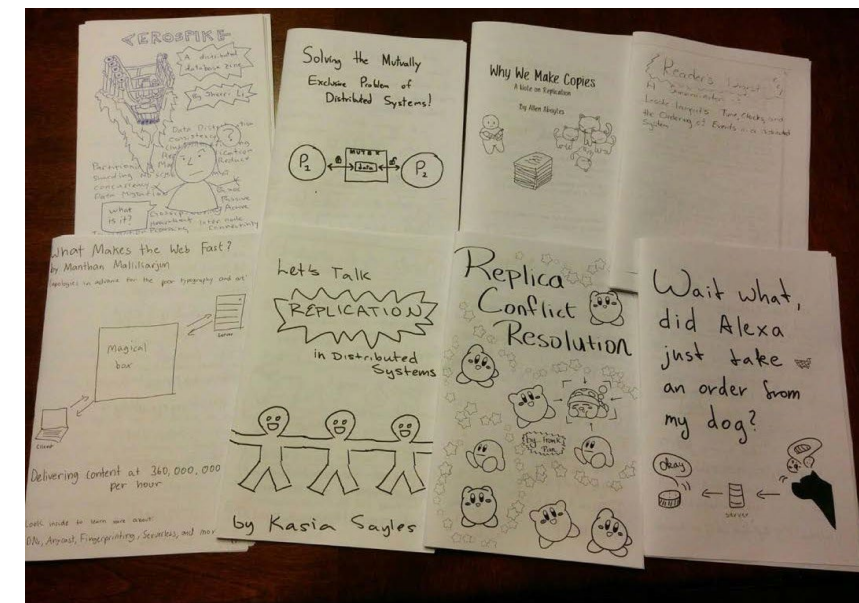 AEROSPIKE
A distributed
database zine
By Sherri
Data
?
consistency
Partitioning
Sharding
concurrency
Data Migration
what
is it?
Solving the Mutually
Exclusive Problem of
Distributed Systems!
P1
MUTEX
data
P2
Why We Make Copies
A Note on Replication
By Allen
Readers Digest
A
Leslie Lamport's Time, Clocks, and
the Ordering of Events in a Distributed
System
What Makes the Web Fast?
by Manthan Mallikarjun
(apologies in advance for the poor typography and art)
Magical
box
server
client
Delivering content at 360,000,000
per hour
Look inside to learn more about:
DNS, Anycast, Fingerprinting, Serverless, and more
Let's Talk
REPLICATION
in Distributed
Systems
by Kasia Sayles
Replica
Conflict
Resolution
by: Frank
Wait what,
did Alexa
just take
an order from
my dog?
okay
server